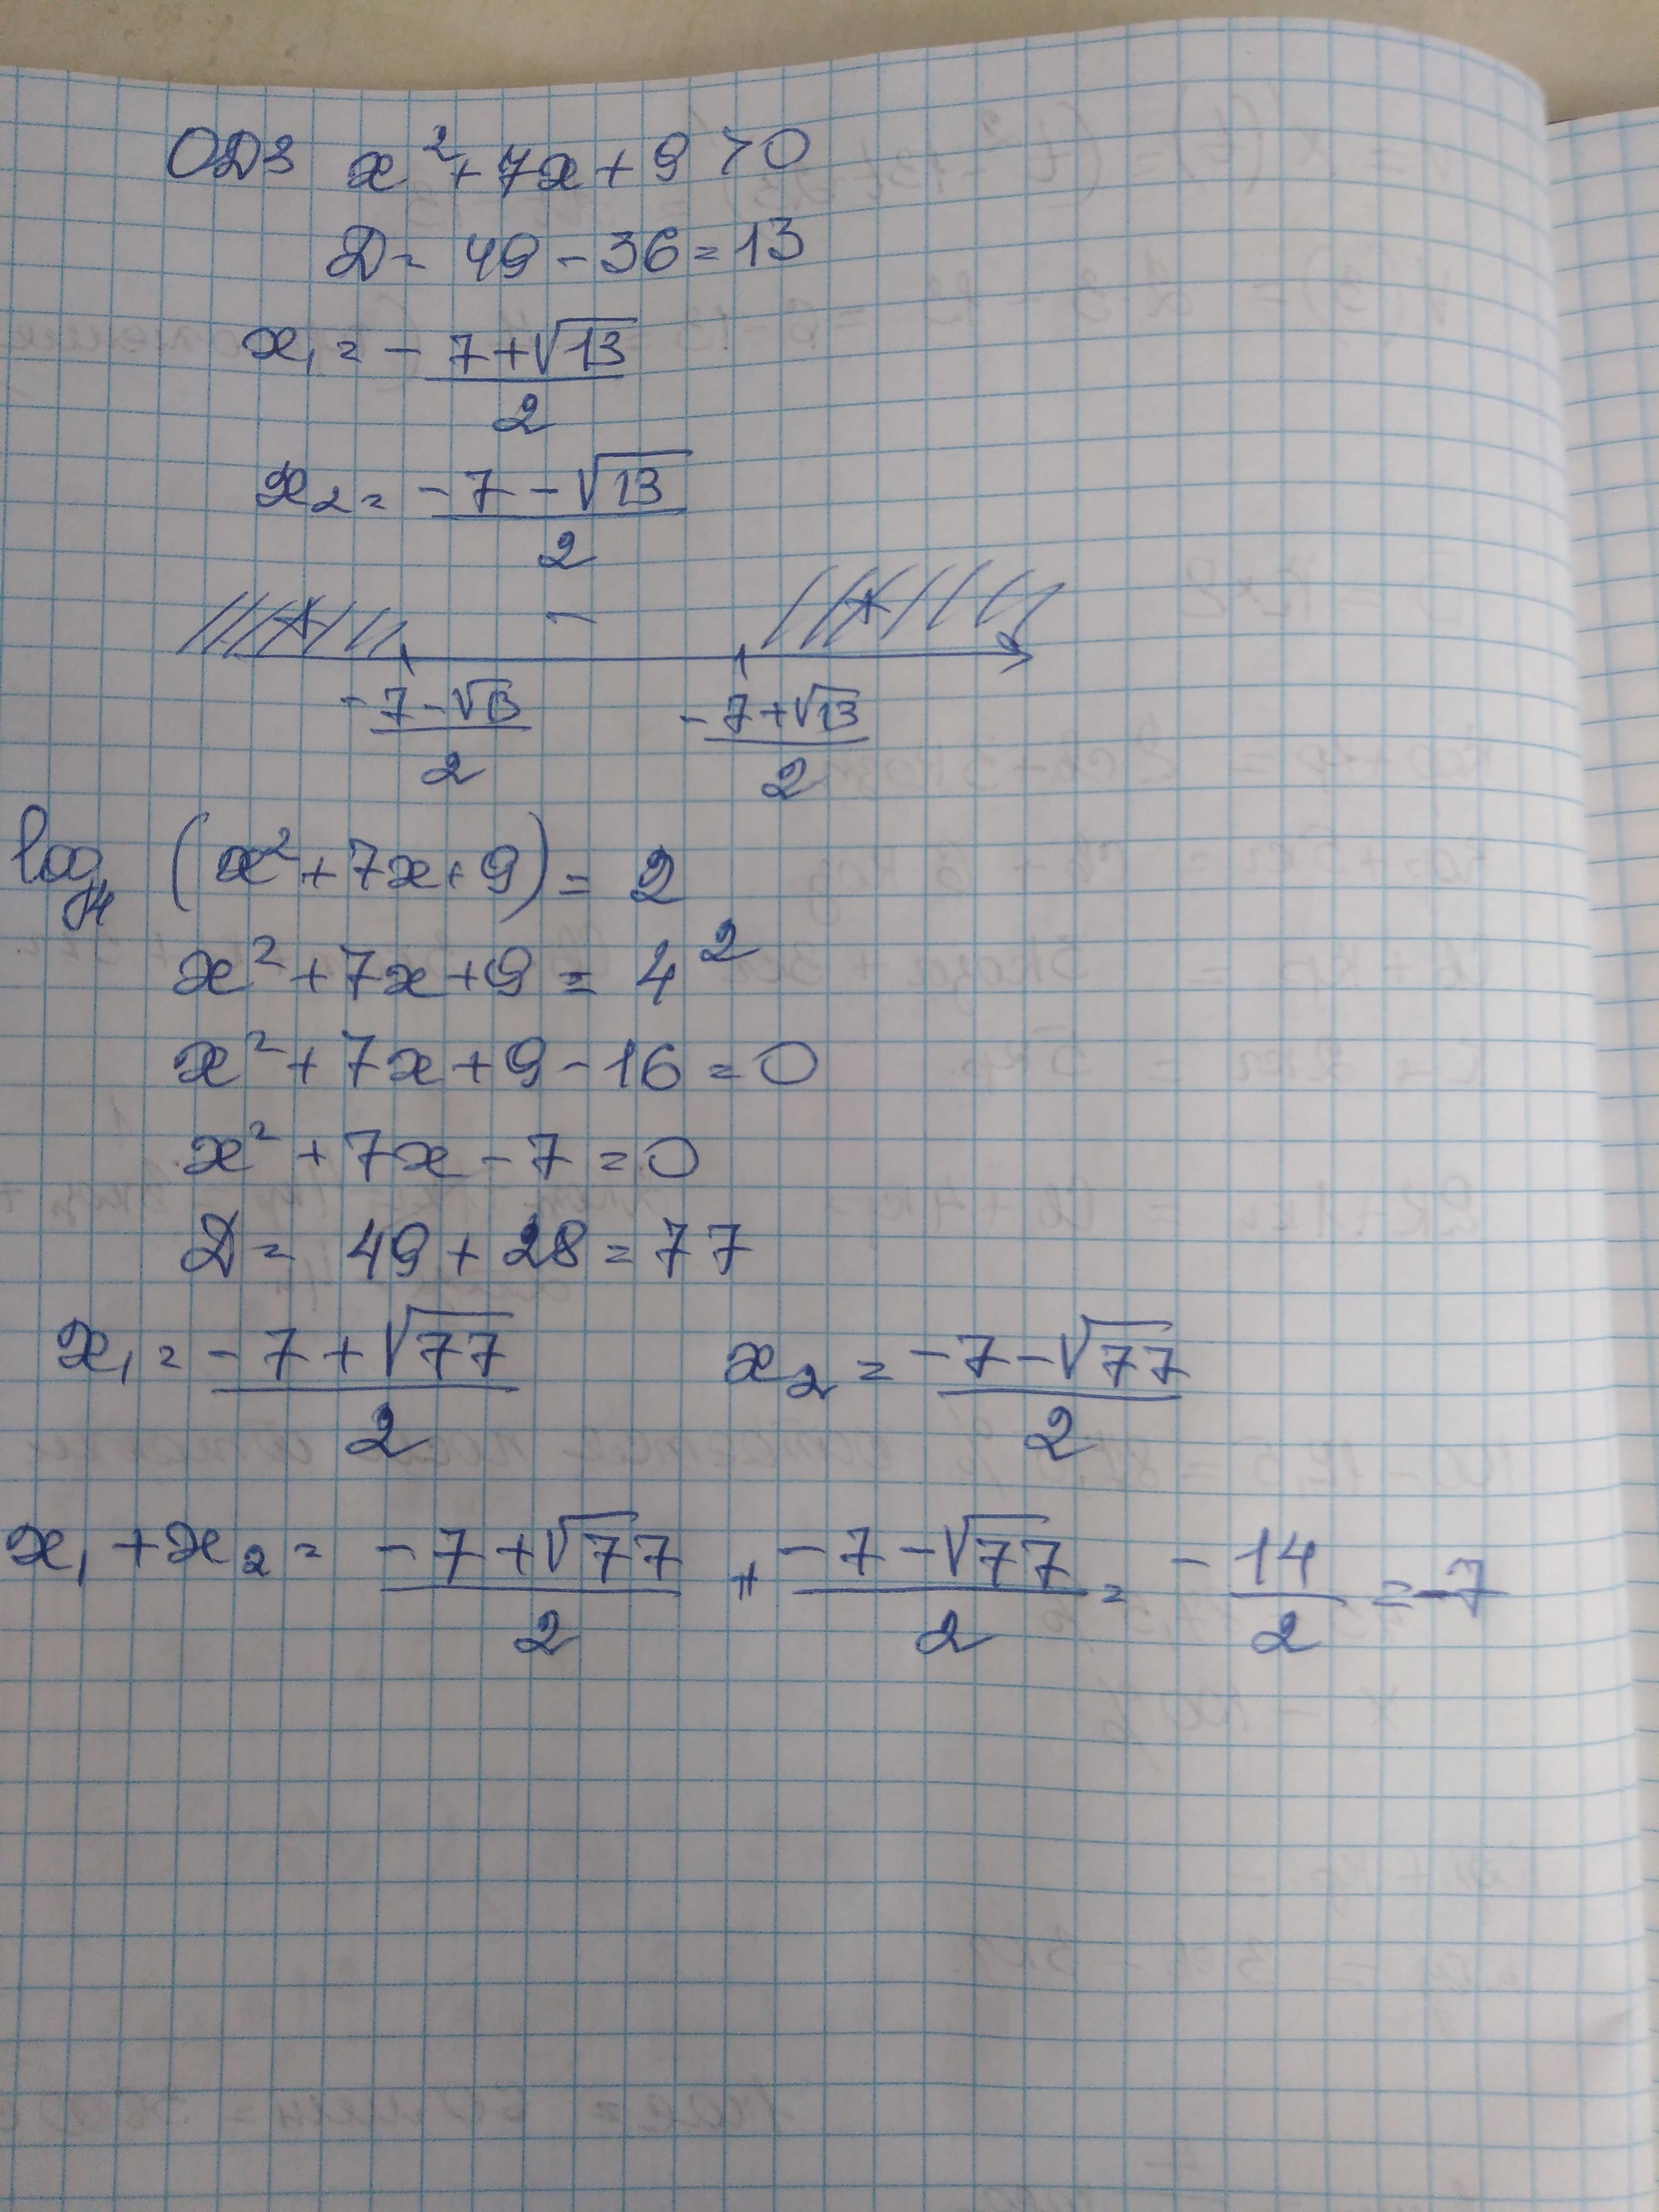 ОДЗ x² + 7x + 9 > 0
D = 49 - 36 = 13
x₁ = (-7 + √13)/2
x₂ = (-7 - √13)/2
+ - +
(-7 - √13)/2 (-7 + √13)/2
log₄ (x² + 7x + 9) = 2
x² + 7x + 9 = 4²
x² + 7x + 9 - 16 = 0
x² + 7x - 7 = 0
D = 49 + 28 = 77
x₁ = (-7 + √77)/2 x₂ = (-7 - √77)/2
x₁ + x₂ = (-7 + √77)/2 + (-7 - √77)/2 = -14/2 = -7